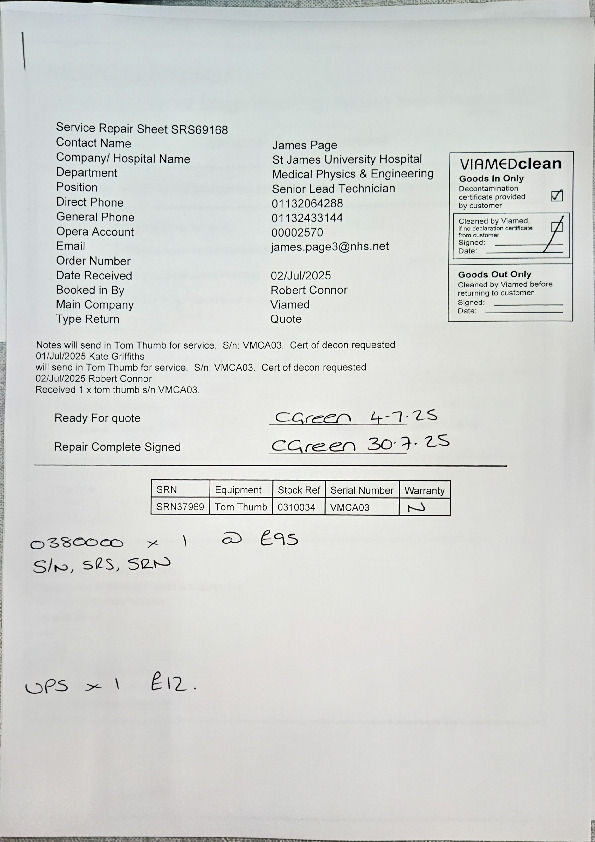 Service Repair Sheet SRS69168
Contact Name James Page
Company/ Hospital Name St James University Hospital
Department Medical Physics & Engineering
Position Senior Lead Technician
Direct Phone 01132064288
General Phone 01132433144
Opera Account 00002570
Email james.page3@nhs.net
Order Number
Date Received 02/Jul/2025
Booked in By Robert Connor
Main Company Viamed
Type Return Quote
VIAMEDclean
Goods In Only
Decontamination
certificate provided
by customer
Cleaned by Viamed,
if no declaration certificate
from customer
Signed:
Date:
Goods Out Only
Cleaned by Viamed before
returning to customer
Signed:
Date:
Notes will send in Tom Thumb for service. S/n: VMCA03. Cert of decon requested
01/Jul/2025 Kate Griffiths
will send in Tom Thumb for service. S/n: VMCA03. Cert of decon requested
02/Jul/2025 Robert Connor
Received 1 x tom thumb s/n VMCA03.
Ready For quote CGreen 4-7-25
Repair Complete Signed CGreen 30.7.25
SRN Equipment Stock Ref Serial Number Warranty
SRN37989 Tom Thumb 0310034 VMCA03 N
0380000 x 1 @ £95
S/N, SRS, SRN
UPS x 1 £12.